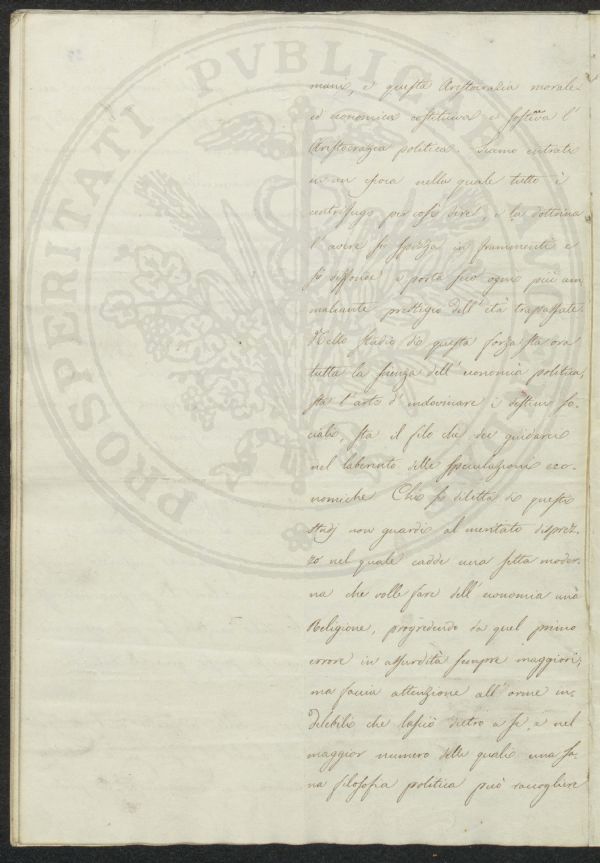 PROSPERITATI PVBLICAE
mani, e questa Aristocrazia morale
ed economica costituiva e sosteneva l'
Aristocrazia politica. Siamo entrati
in un epoca nella quale tutto è
centrifugo per così dire, e la dottrina
l'avere si spezza in frammenti e
si diffonde e porta seco ogni più am
maliante prestigio dell'età trapassate.
Nello studio di questa forza sta ora
tutta la scienza dell'economia politica,
sta l'arte d'indovinare i destini so,
ciali, sta il filo che dee guidarci
nel laberinto delle speculazioni eco=
nomiche. Chi si diletta di questi
studj non guardi al meritato disprez,
zo nel quale cadde una setta moder,
na che volle fare dell'economia una
Religione, progredendo da quel primo
errore in assurdità sempre maggiori;
ma faccia attenzione all'orme in,
delebili che lasciò dietro a se, e nel
maggior numero delle quali una sa,
na filosofia politica può raccogliere